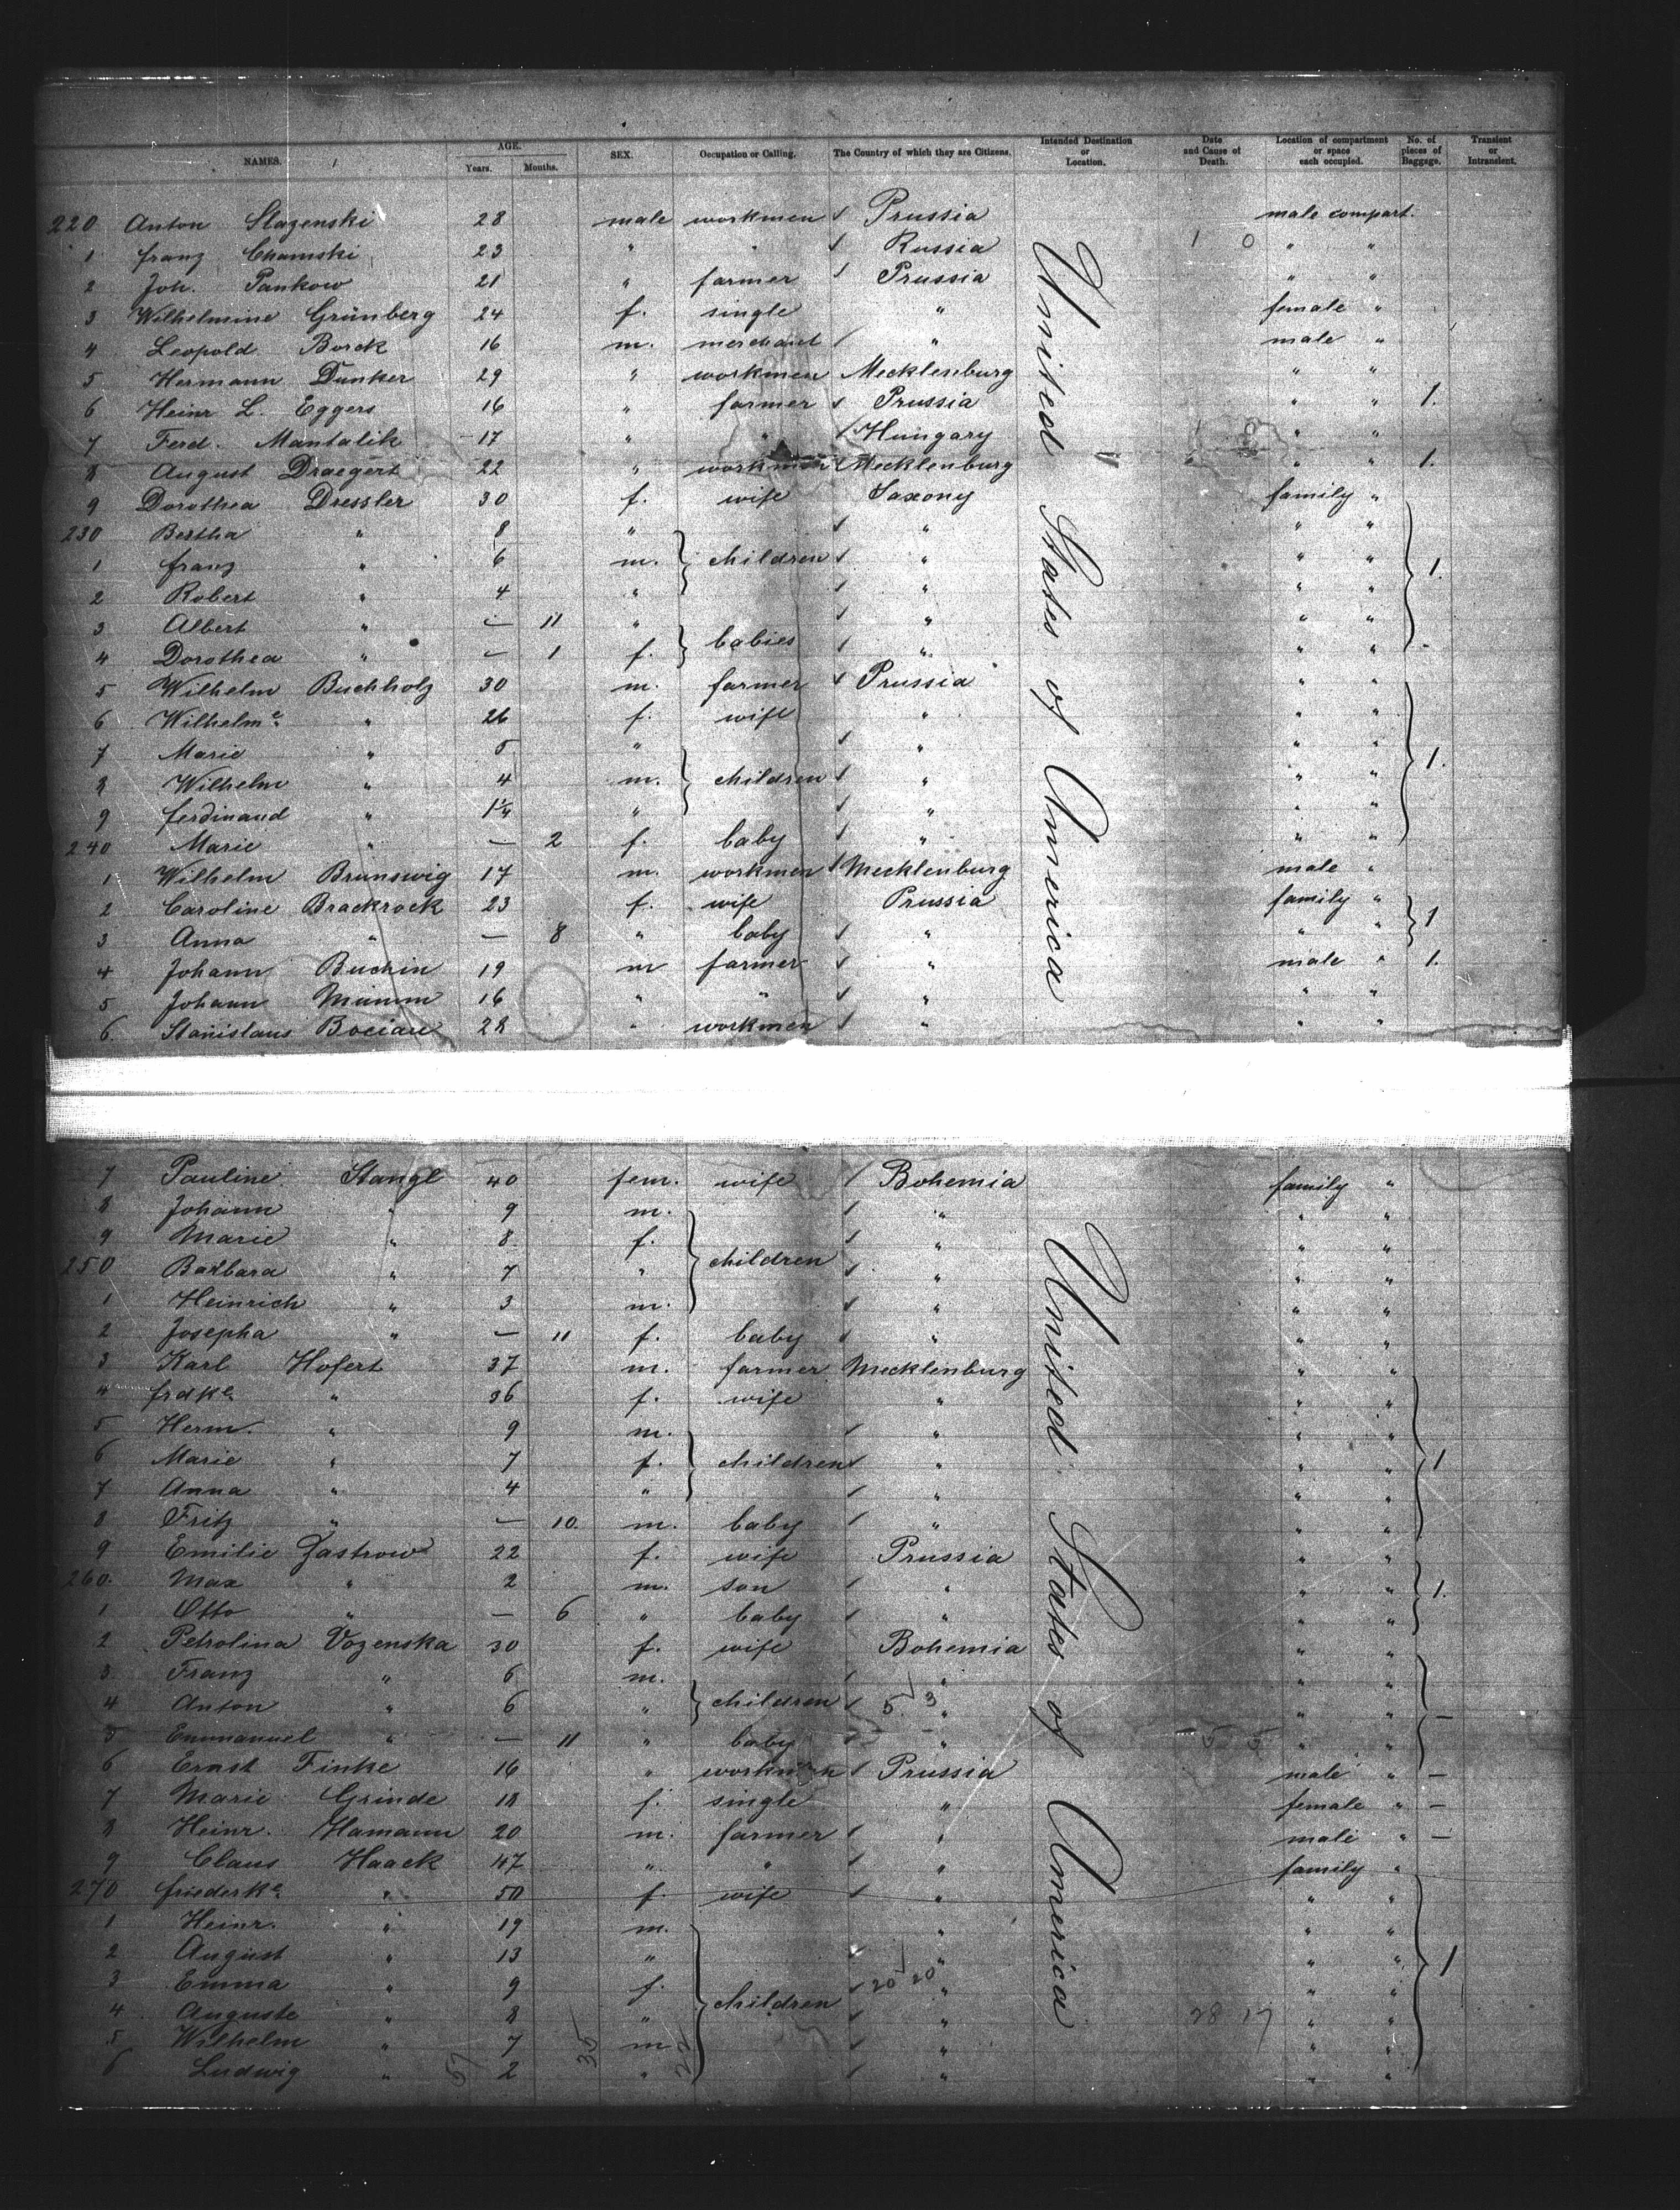 NAMES. AGE. Years. Months. SEX. Occupation or Calling. The Country of which they are Citizens. Intended Destination or Location. Date and Cause of Death. Location of compartment or space each occupied. No. of pieces of Baggage. Transient or Intransient.
220 Anton Slazenski 28 male workmen Prussia male compart.
1 franz Chamski 23 " " Russia 1 0 " "
2 Joh. Pankow 21 " farmer Prussia " "
3 Wilhelmine Grünberg 24 f. single " female "
4 Leopold Borck 16 m. merchant " male "
5 Hermann Dunker 29 " workmen Mecklenburg " "
6 Heinr L. Eggers 16 " farmer Prussia " " 1.
7 Ferd. Mantalik 17 " " Hungary " "
8 August Draegert 22 " workmen Mecklenburg " " 1.
9 Dorothea Dressler 30 f. wife Saxony family "
230 Bertha " 8 " " " "
1 franz " 6 m. children " " " 1.
2 Robert " 4 " " " "
3 Albert " — 11 " " " "
4 Dorothea " — 1 f. babies " " "
5 Wilhelm Buchholz 30 m. farmer Prussia " "
6 Wilhelme " 26 f. wife " " "
7 Marie " 5 " " " "
8 Wilhelm " 4 m. children " " " 1.
9 ferdinand " 1¼ " " " "
240 Marie " — 2 f. baby " " "
1 Wilhelm Brunswig 17 m. workmen Mecklenburg male "
2 Caroline Brackrock 23 f. wife Prussia family "
3 Anna " — 8 " baby " " " 1
4 Johann Buchin 19 m farmer " male " 1.
5 Johann Mumm 16 " " " " "
6. Stanislaus Bociau 28 " workmen " " "
United States of America
7 Pauline Stangl 40 fem. wife Bohemia family "
8 Johann " 9 m. " " "
9 Marie " 8 f. " " "
250 Barbara " 7 " children " " "
1 Heinrich " 3 m. " " "
2 Josepha " — 11 f. baby " " "
3 Karl Hofert 37 m. farmer Mecklenburg " "
4 frdke " 36 f. wife " " "
5 Herm. " 9 m. " " "
6 Marie " 7 f. children " " " 1
7 Anna " 4 " " " "
8 Fritz " — 10. m. baby " " "
9 Emilie Zastrow 22 f. wife Prussia " "
260. Max " 2 m. son " " " 1.
1 Otto " — 6 " baby " " "
2 Petrolina Vozenska 30 f. wife Bohemia " "
3 Franz " 6 m. " " "
4 Anton " 6 " children 5 3 " " " —
5 Emmanuel " — 11 " baby " 5 5 " "
6 Ernst Finke 16 " workmen Prussia male " —
7 Marie Grinde 18 f. single " female " —
8 Heinr. Hamann 20 m. farmer " male " —
9 Claus Haack 47 " " " family "
270 friederke " 50 f. wife " " "
1 Heinr. " 19 m. " " "
2 August " 13 " " " " 1
3 Emma " 9 f. 20 20 " " "
4 Auguste " 8 " children " 28 17 " "
5 Wilhelm " 7 m " " "
6 Ludwig " 2 " " " "
57 35 22
United States of America